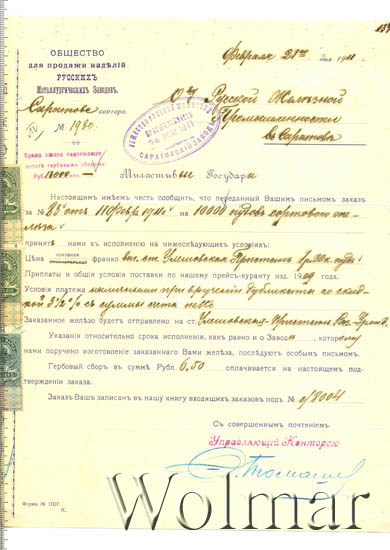 ОБЩЕСТВО
для продажи издѣлій
РУССКИХЪ
Металлургическихъ Заводовъ.
Февраля 21го дня 1911
О/у Русской Желѣзной
Промышленности
въ Саратовѣ
контора.
№ 1980.
САРАТОВСКІЙ ЗАВОДЪ
Сумма заказа подлежащая
оплатѣ гербовымъ сборомъ
Рубл.
Милостивые Государи
Настоящимъ имѣемъ честь сообщить, что переданный Вашимъ письмомъ заказъ
за № 83 отъ 11 Февр 1911 на 10000 пудовъ сортового
принятъ нами къ исполненію на нижеслѣдующихъ условіяхъ:
Цѣна основная франко
Приплаты и общія условія поставки по нашему прейсъ-куранту изд. 1909 года.
Условія платежа наличными при врученіи дубликата со скид
кой 3½% съ суммы счета
Заказанное желѣзо будетъ отправлено на ст.
Указанія относительно срока исполненія, какъ равно и о Заводѣ, которому
нами поручено изготовленіе заказаннаго Вами желѣза, послѣдуютъ особымъ письмомъ.
Гербовый сборъ въ суммѣ Рубл 6.50 оплачивается на настоящемъ под-
твержденіи заказа.
Заказъ Вашъ записанъ въ нашу книгу входящихъ заказовъ подъ № с/8004
Съ совершеннымъ почтеніемъ
Управляющій Конторою
Wolmar
Форма № 1007.
К.